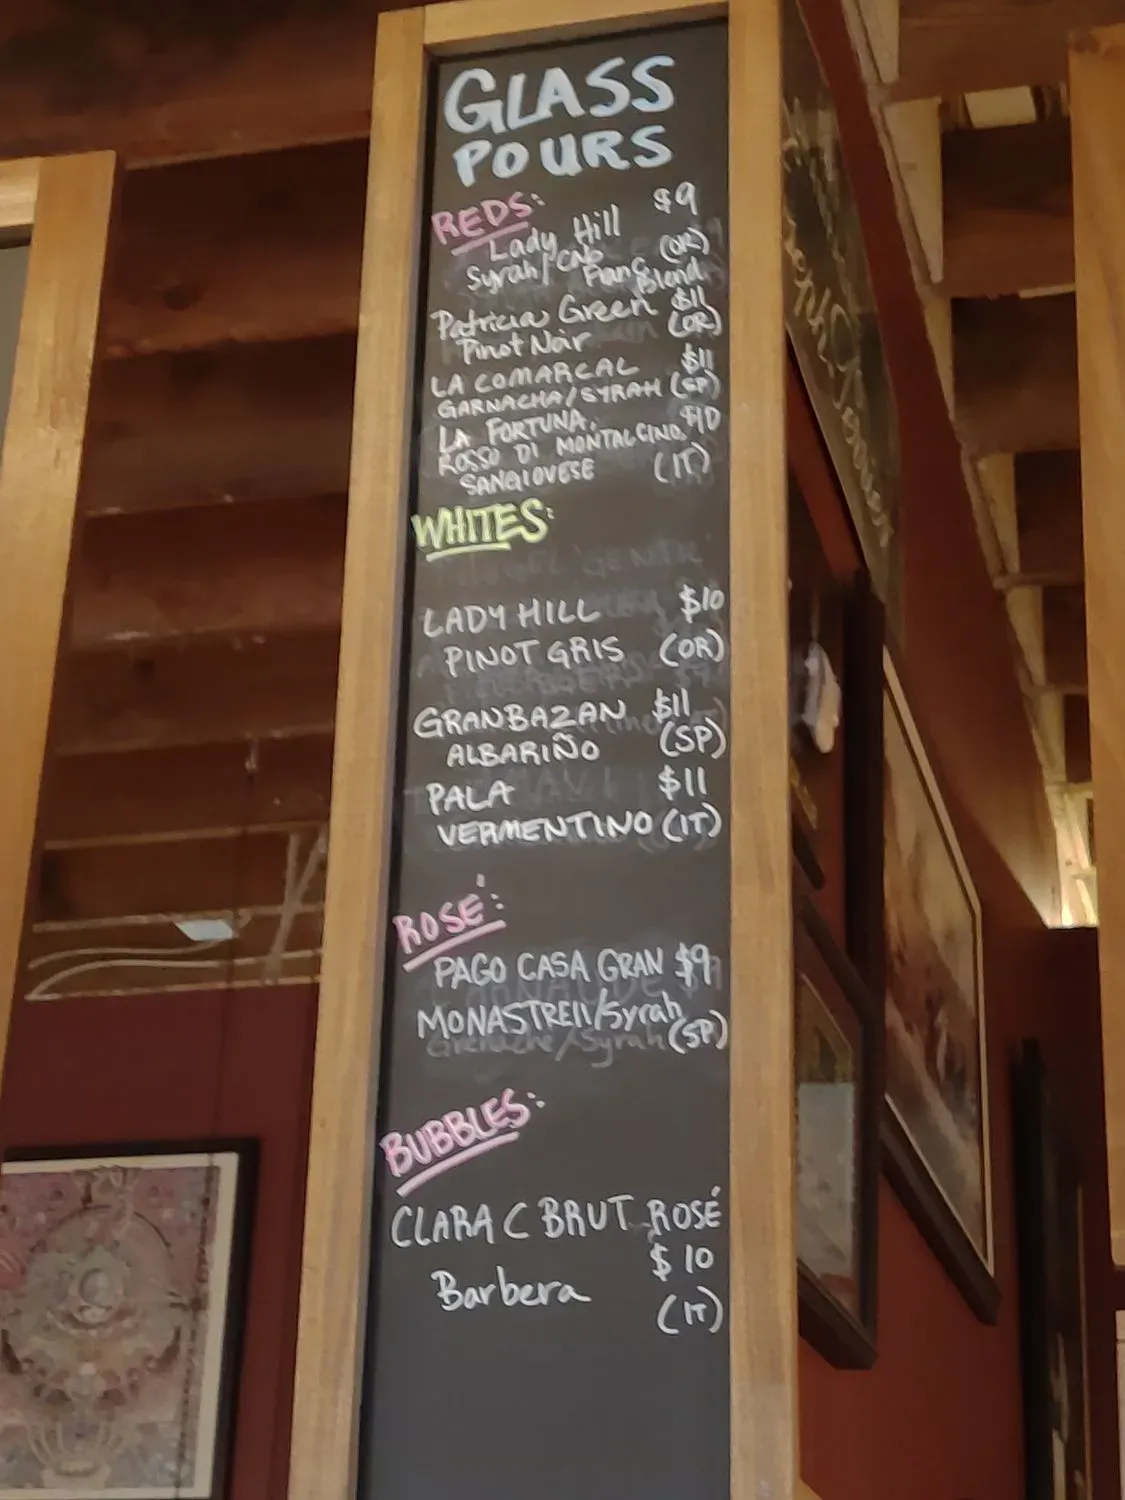 GLASS
POURS
REDS: $9
Lady Hill (OR)
Syrah/Cab Franc Blend
Patricia Green $11
Pinot Noir (OR)
LA COMARCAL $11
GARNACHA/SYRAH (SP)
LA FORTUNA, $10
ROSSO DI MONTALCINO,
SANGIOVESE (IT)
WHITES:
LADY HILL $10
PINOT GRIS (OR)
GRANBAZAN $11
ALBARIÑO (SP)
PALA $11
VERMENTINO (IT)
ROSÉ:
PAGO CASA GRAN $9
MONASTRELL/Syrah
Grenache/Syrah (SP)
BUBBLES:
CLARA C BRUT ROSÉ
$10
Barbera
(IT)